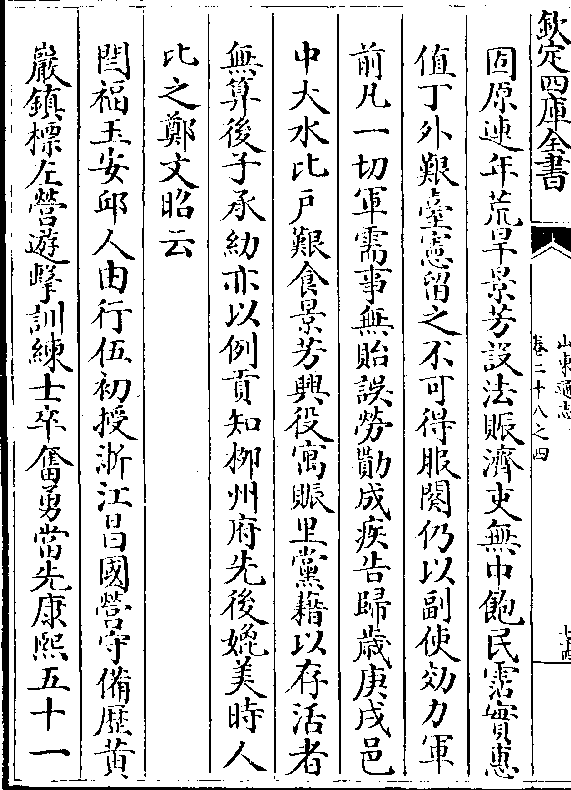 欽定四庫全書
山東通志
卷二十八之四
固原連年荒旱景芳設法賑濟吏無中飽民霑實惠
值丁外艱臺憲留之不可得服闋仍以副使効力軍
前凡一切軍需事無貽誤勞勩成疾告歸歲庚戌邑
中大水比戶艱食景芳興役寓賑里黨藉以存活者
無算後子承幼亦以例貢知柳州府先後媲美時人
比之鄭文昭云
閆福玉安邱人由行伍初授浙江昌國營守備歴黄
巖鎮標左營遊擊訓練士卒奮勇當先康熙五十一